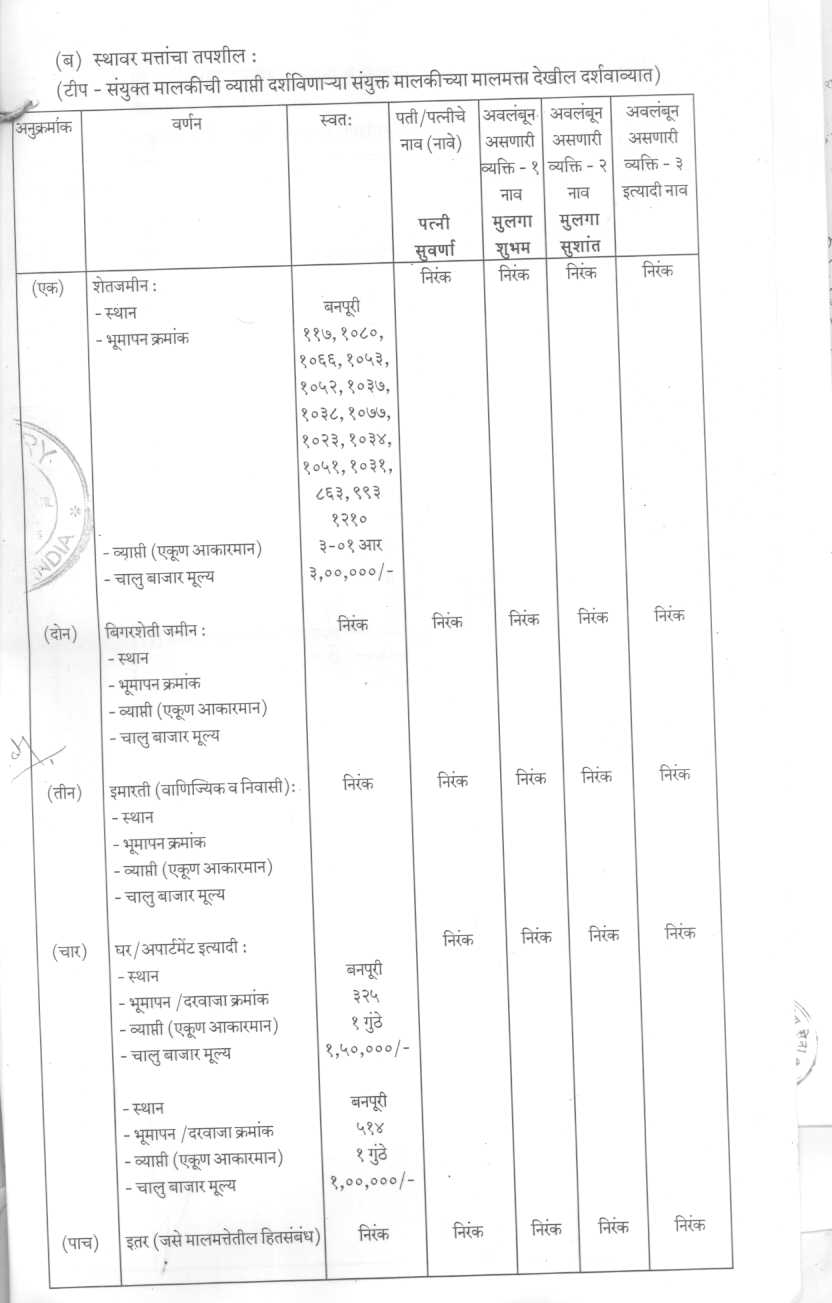 (ब) स्थावर मत्तांचा तपशील :
(टीप - संयुक्त मालकीची व्याप्ती दर्शविणाऱ्या संयुक्त मालकीच्या मालमत्ता देखील दर्शवाव्यात)
अनुक्रमांक वर्णन स्वतः पती/पत्नीचे अवलंबून अवलंबून अवलंबून
नाव (नावे) असणारी असणारी असणारी
व्यक्ति - १ व्यक्ति - २ व्यक्ति - ३
नाव नाव इत्यादी नाव
पत्नी मुलगा मुलगा
सुवर्णा शुभम सुशांत
(एक) शेतजमीन : निरंक निरंक निरंक निरंक
- स्थान बनपूरी
- भूमापन क्रमांक ११७, १०८०,
१०६६, १०५३,
१०५२, १०३७,
१०३८, १०७७,
१०२३, १०३४,
१०५१, १०३१,
८६३, ९९३
१२१०
- व्याप्ती (एकूण आकारमान) ३-०१ आर
- चालु बाजार मूल्य ३,००,०००/-
(दोन) बिगरशेती जमीन : निरंक निरंक निरंक निरंक निरंक
- स्थान
- भूमापन क्रमांक
- व्याप्ती (एकूण आकारमान)
- चालु बाजार मूल्य
(तीन) इमारती (वाणिज्यिक व निवासी): निरंक निरंक निरंक निरंक निरंक
- स्थान
- भूमापन क्रमांक
- व्याप्ती (एकूण आकारमान)
- चालु बाजार मूल्य
(चार) घर/अपार्टमेंट इत्यादी : निरंक निरंक निरंक निरंक
- स्थान बनपूरी
- भूमापन /दरवाजा क्रमांक ३२५
- व्याप्ती (एकूण आकारमान) १ गुंठे
- चालु बाजार मूल्य १,५०,०००/-
- स्थान बनपूरी
- भूमापन /दरवाजा क्रमांक ५१४
- व्याप्ती (एकूण आकारमान) १ गुंठे
- चालु बाजार मूल्य १,००,०००/-
(पाच) इतर (जसे मालमत्तेतील हितसंबंध) निरंक निरंक निरंक निरंक निरंक
INDIA